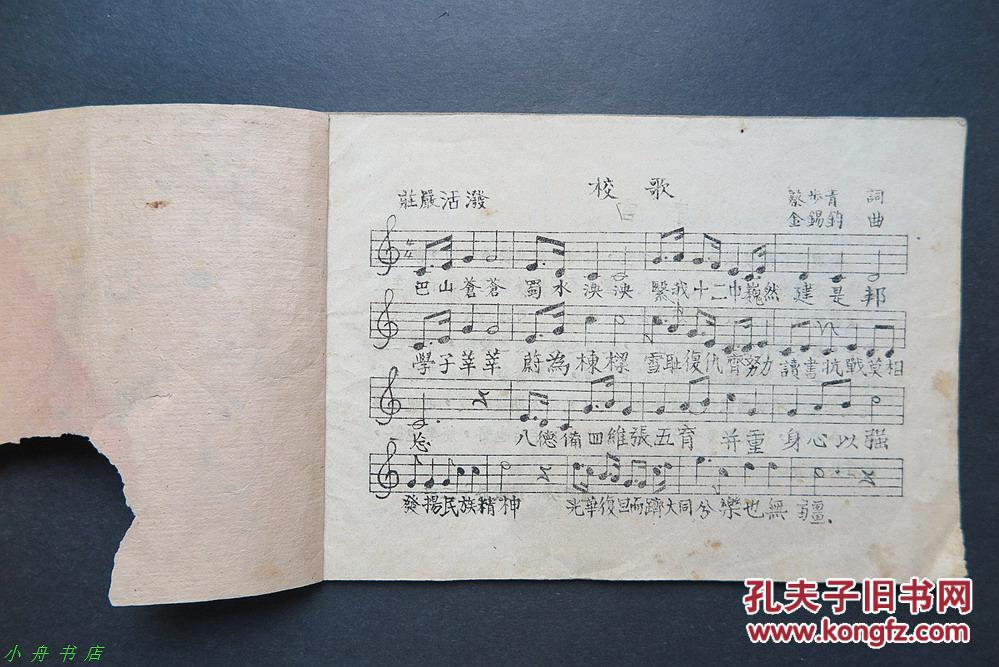 校歌
莊嚴活潑
蔡步青 詞
金錫鈞 曲
巴山蒼蒼 蜀水泱泱 繄我十二中巍然 建是邦
學子莘莘 蔚為棟樑 雪耻復仇齊努力 讀書抗戰莫相
忘 八德備四維張五育 并重 身心以强
發揚民族精神 光華復旦而躋大同兮樂也無疆
孔夫子旧书网
www.kongfz.com
小舟书店